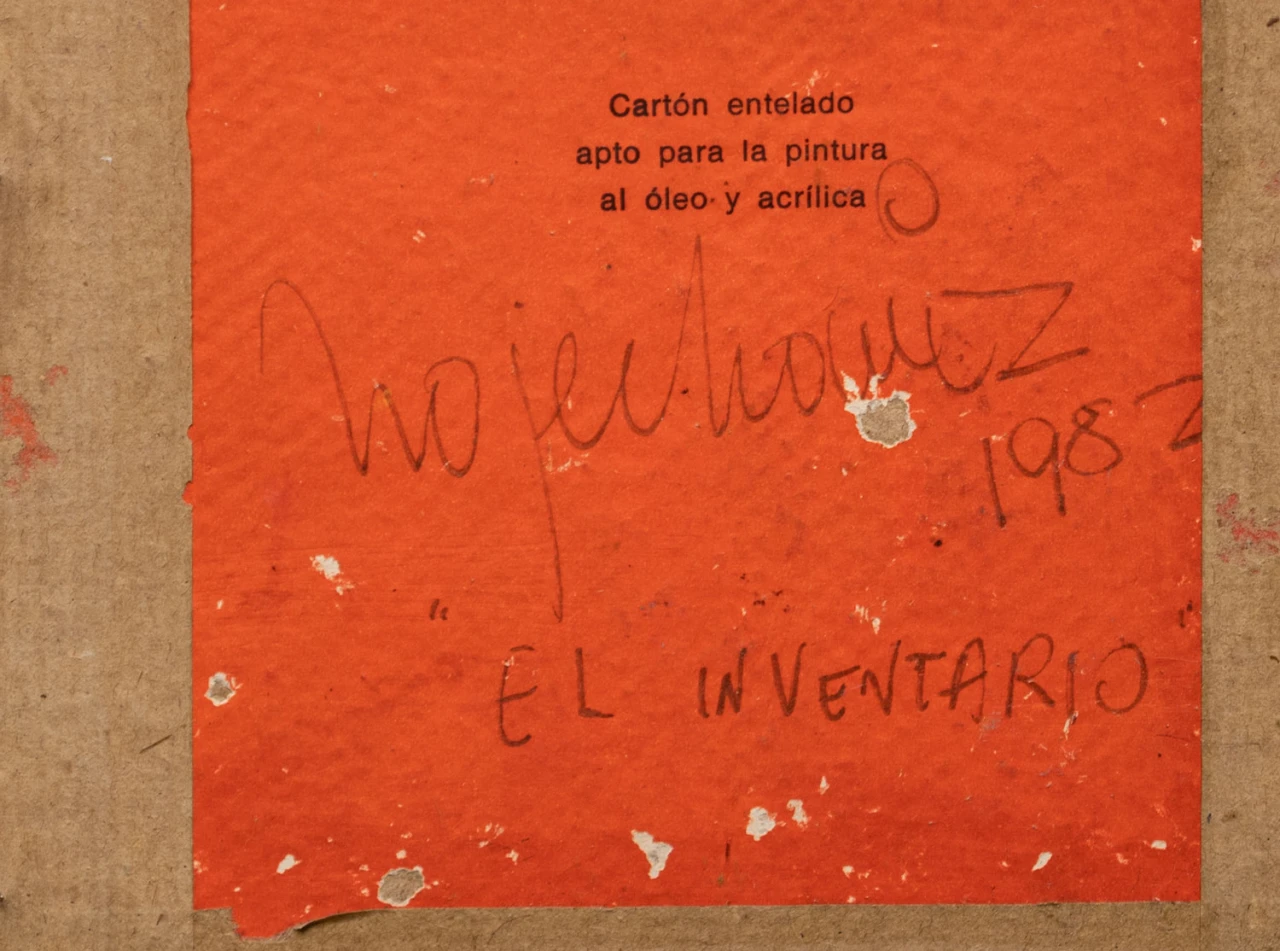 Cartón entelado
apto para la pintura
al óleo y acrílica
1982
"EL INVENTARIO"